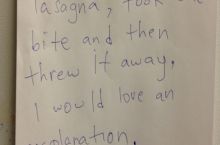 lasagna, took one
bite and then
threw it away.
I would love an
explanation.